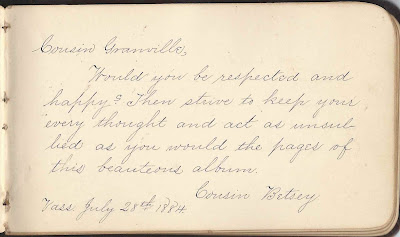 Cousin Granville,
Would you be respected and
happy? Then strive to keep your
every thought and act as unsul-
lied as you would the pages of
this beauteous album.
Cousin Betsey
Vass. July 28th 1884.